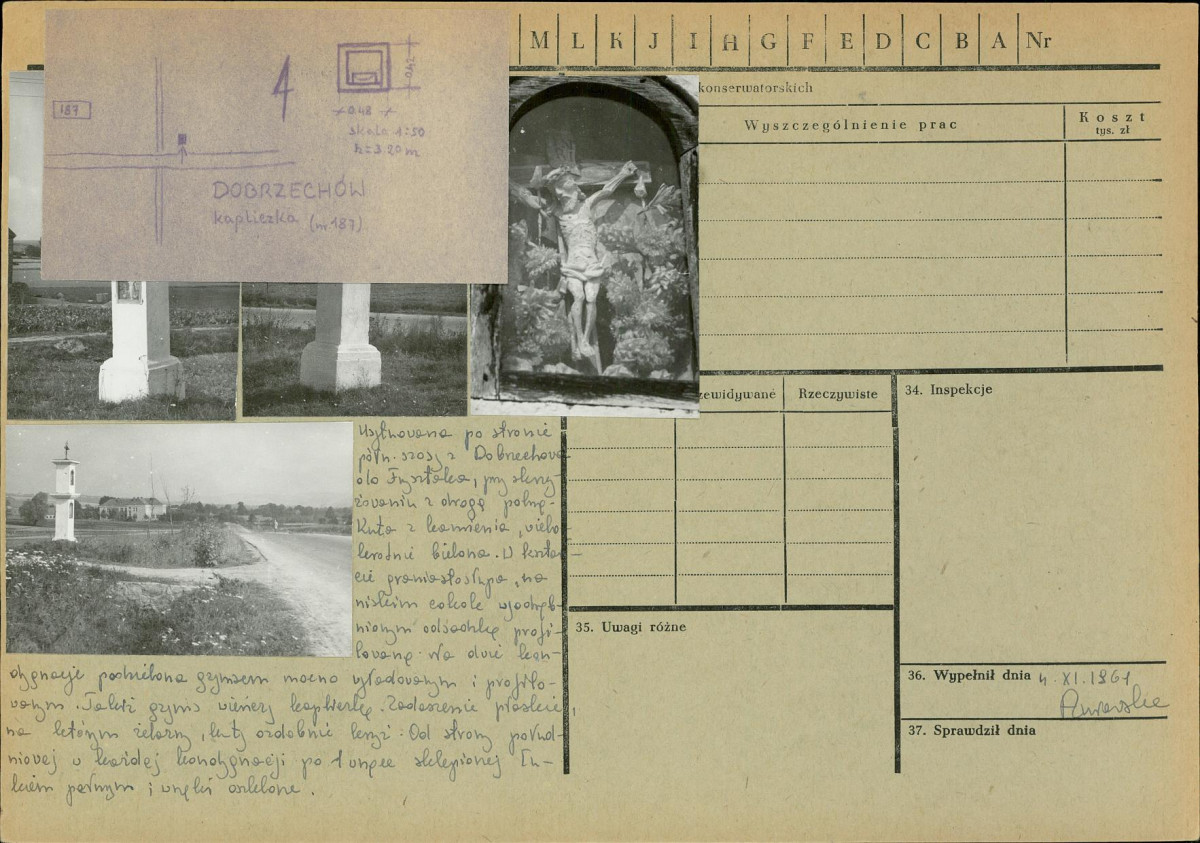 M L K J I H G F E D C B A Nr
187
4
0.42
0.48
skala 1:50
h=3.20 m
DOBRZECHÓW
kapliczka (nr 187)
konserwatorskich
Wyszczególnienie prac
Koszt
tys. zł
zewidywane
Rzeczywiste
34. Inspekcje
35. Uwagi różne
36. Wypełnił dnia 4. XI. 1961
37. Sprawdził dnia
Usytuowana po stronie
półn. szosy z Dobrzechowa
do Frysztaka, przy skrzy-
żowaniu z drogą polną.
Kuta z kamienia, wielo-
krotnie bielona. W kształ-
cie graniastosłupa, na
niskim cokole wyodręb-
nionym odsadzką profi-
lowaną. Na dwie kon-
dygnacje podzielona gzymsem mocno wyładowanym i profilo-
wanym. Takiż gzyms wieńczy kapliczkę. Zadaszenie płaskie,
na którym żelazny, kuty ozdobnie krzyż. Od strony połud-
niowej w każdej kondygnacji po 1 wnęce sklepionej łu-
kiem pełnym i wnęki oszklone.